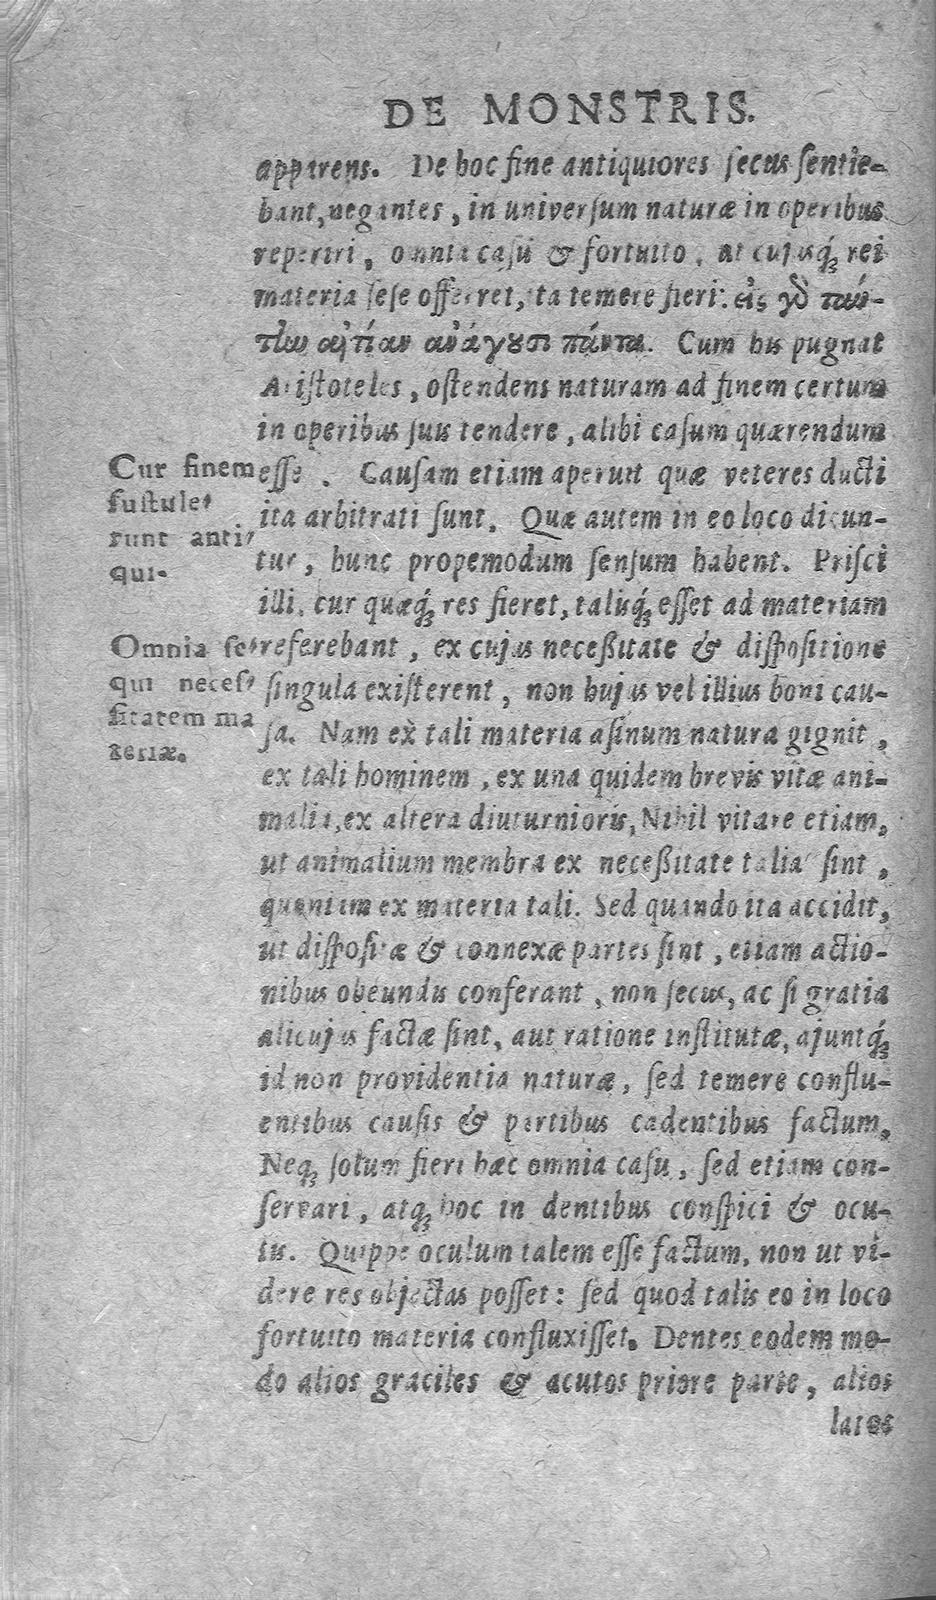 DE MONSTRIS.
apparens. De hoc fine antiquiores secus sentie-
bant, negantes, in universum naturæ in operibus
reperiri, omnia casu & fortuito, ut cujusq́; rei
materia sese offerret, ita temere fieri: εἰς γὸ ταύ-
τlω αἰτίαν ἀνάγȣσι πάντα. Cum his pugnat
Aristoteles, ostendens naturam ad finem certum
in operibus suis tendere, alibi casum quærendum
esse. Causam etiam aperuit quæ veteres ducti
ita arbitrati sunt. Quæ autem in eo loco dicun-
tur, hunc propemodum sensum habent. Prisci
illi, cur quæq́; res fieret, talisq́; esset ad materiam
referebant, ex cujus necessitate & dispositione
singula existerent, non hujus vel illius boni cau-
sa. Nam ex tali materia asinum natura gignit,
ex tali hominem, ex una quidem brevis vitæ ani-
malia, ex altera diuturnioris, Nihil vitare etiam,
ut animalium membra ex necessitate talia sint,
quoniam ex materia tali. Sed quando ita accidit,
ut dispositæ & connexæ partes sint, etiam actio-
nibus obeundis conferant, non secus, ac si gratia
alicujus factæ sint, aut ratione institutæ, ajuntq́;
id non providentia naturæ, sed temere conflu-
entibus causis & partibus cadentibus factum.
Neq; solum fieri hæc omnia casu, sed etiam con-
servari, atq; hoc in dentibus conspici & ocu-
lis. Quippe oculum talem esse factum, non ut vi-
dere res objectas posset: sed quod talis eo in loco
fortuito materia confluxisset. Dentes eodem mo-
do alios graciles & acutos priore parte, alios
latos
Cur finem
sustule-
runt anti-
qui.
Omnia se-
qui neces-
sitatem ma
teriæ.